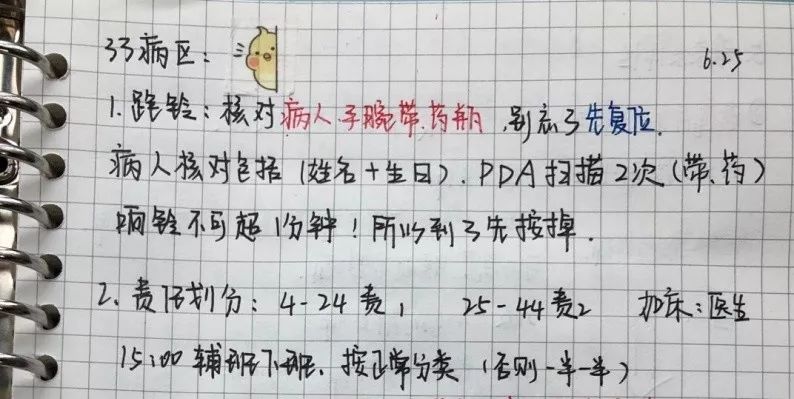 33病区: 6.25
1. 跑铃:核对病人、手腕带、药瓶,别忘了先复位.
病人核对包括(姓名+生日). PDA扫描2次(带、药)
响铃不可超1分钟!所以到了先按掉.
2. 责任划分: 4-24责1 25-44责2 加床:医生
15:00辅班下班、按正常分类(否则一半一半)